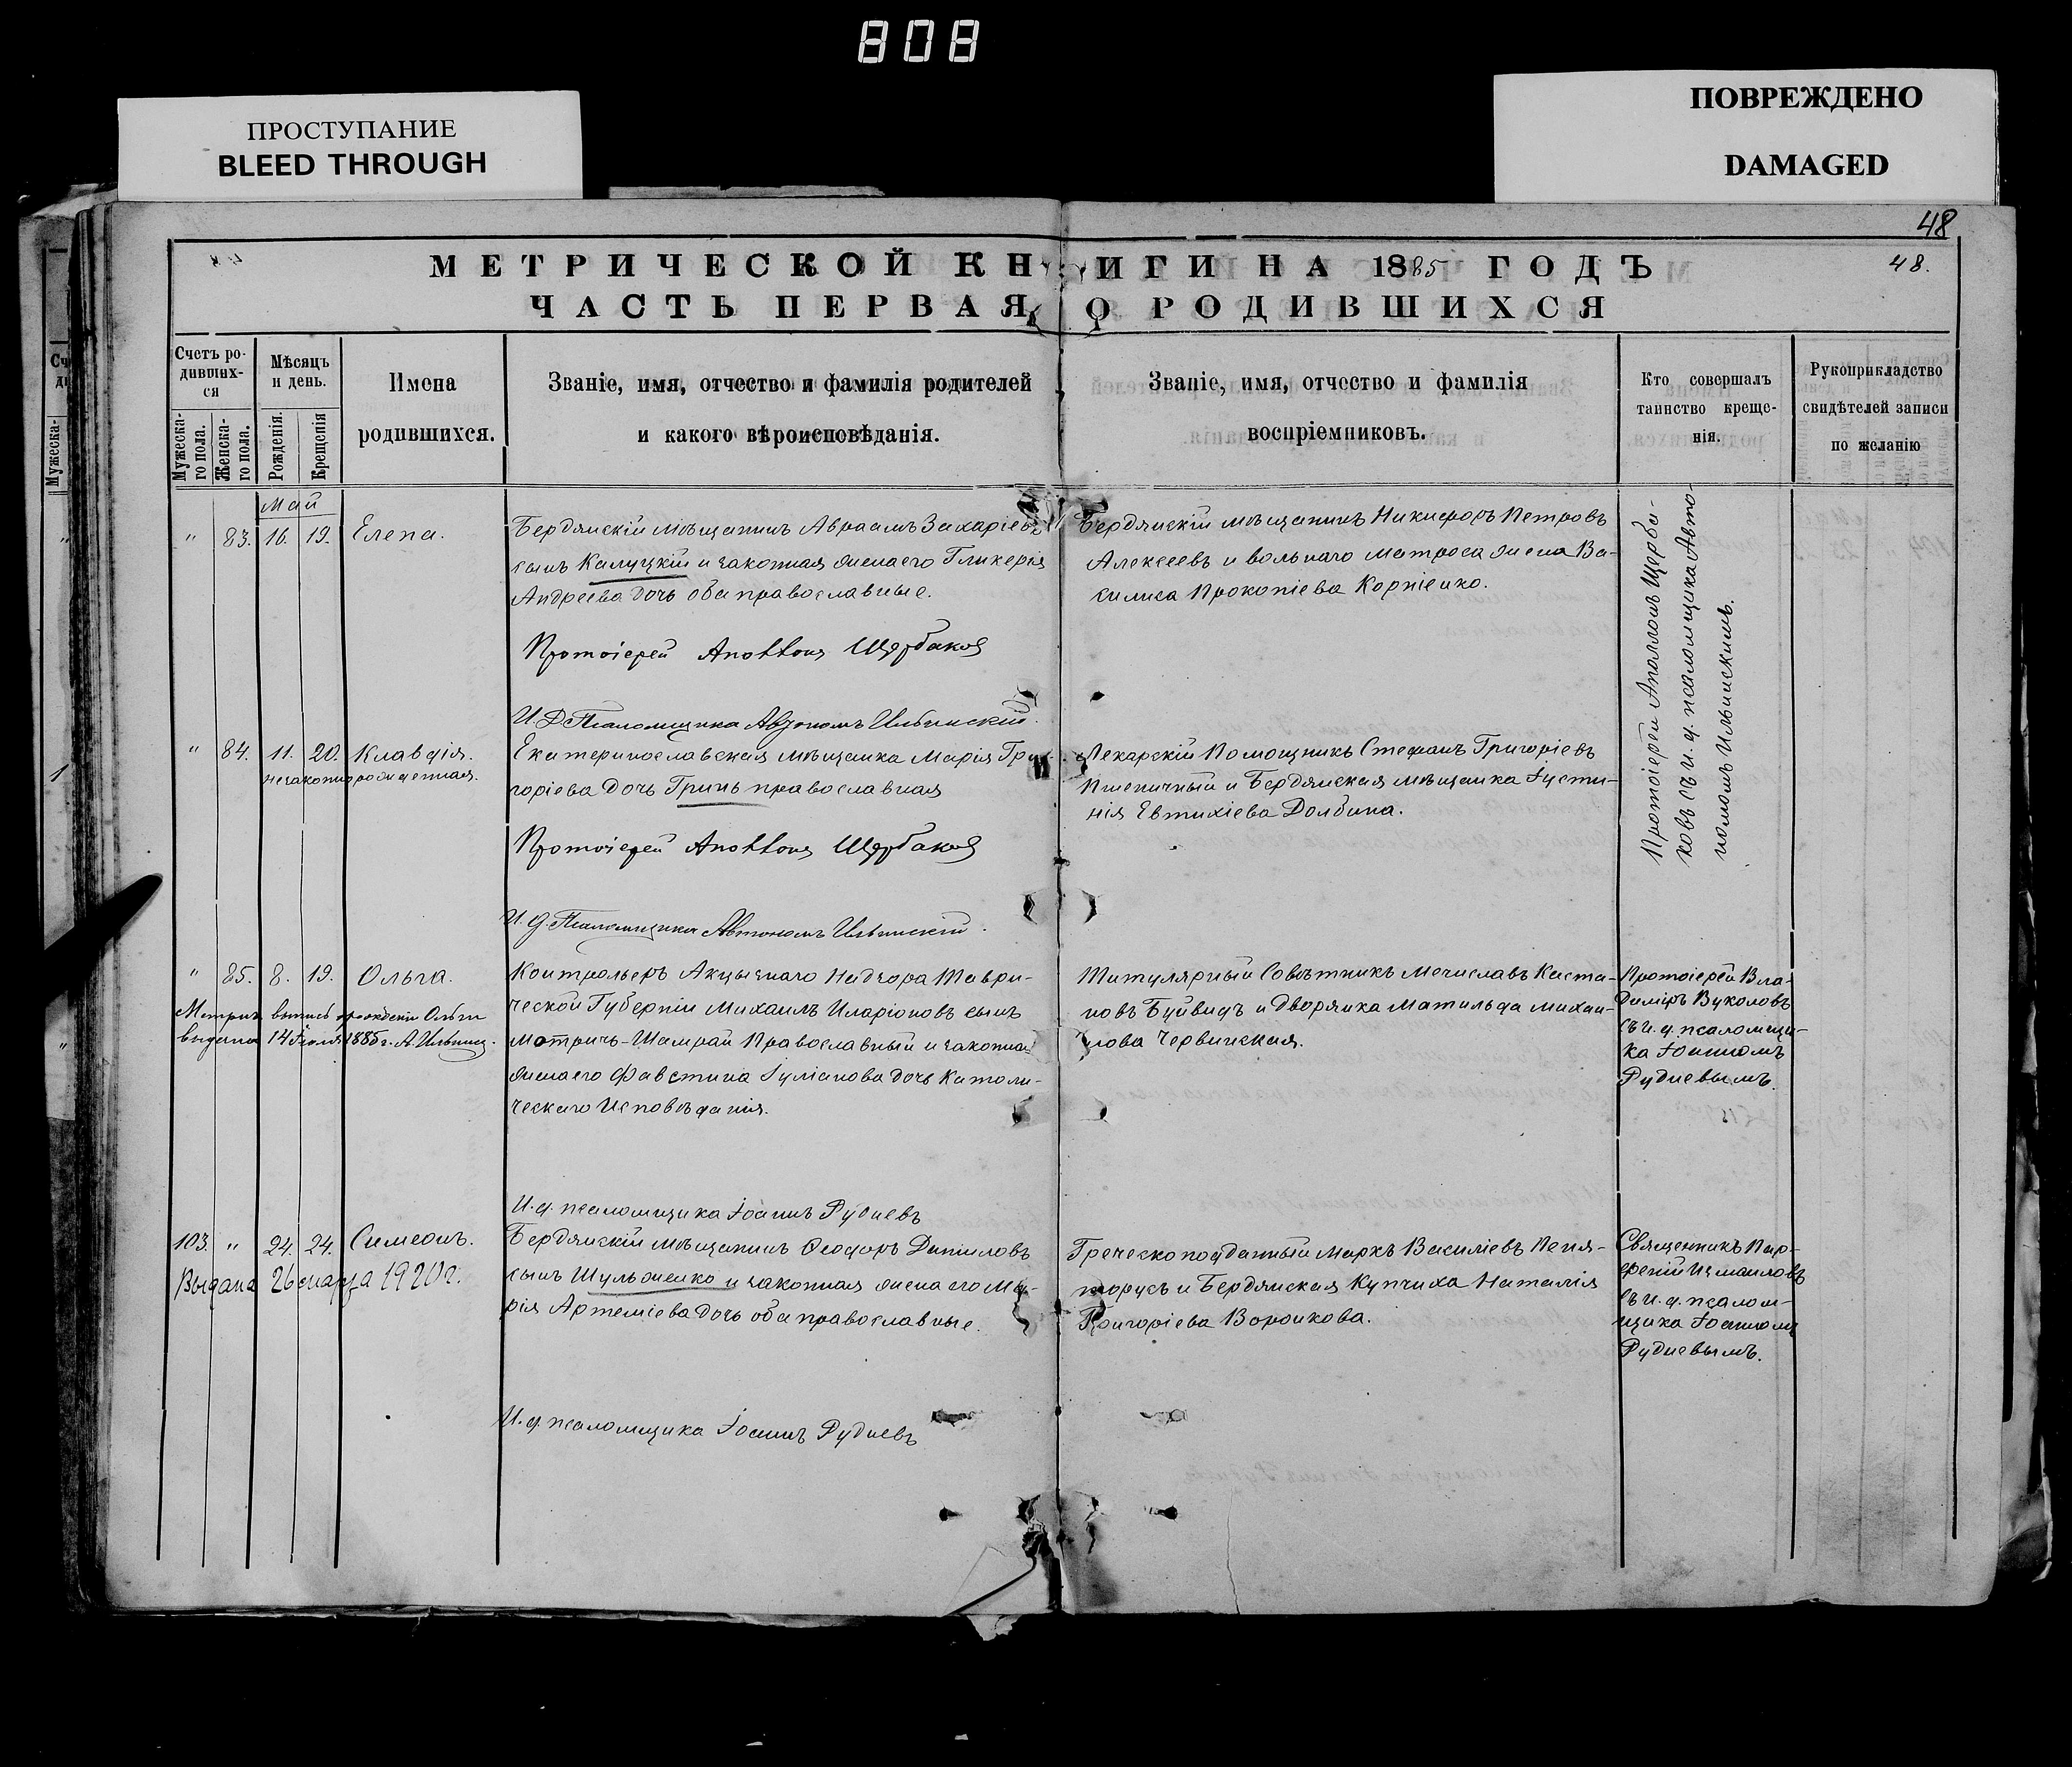 808
ПРОСТУПАНИЕ
BLEED THROUGH
ПОВРЕЖДЕНО
DAMAGED
48
МЕТРИЧЕСКОЙ КНИГИ НА 1885 ГОДЪ
48.
ЧАСТЬ ПЕРВАЯ О РОДИВШИХСЯ
Счетъ ро-
дивших-
ся
Мужеска-
го пола.
Женска-
го пола.
Мѣсяцъ
и день.
Рожденія.
Крещенія
Имена
родившихся.
Званіе, имя, отчество и фамилія родителей
и какого вѣроисповѣданія.
Званіе, имя, отчество и фамилія
воспріемниковъ.
Кто совершалъ
таинство креще-
нія.
Рукоприкладство
свидѣтелей записи
по желанію
Май
" 83. 16. 19. Елена.
Бердянскій мѣщанинъ Авраамъ Захаріевъ
сынъ Калуцкій и законная жена его Гликерія
Андреева дочь оба православные.
Протоіерей Аполлонъ Щербаковъ
И. Д. Псаломщика Автономъ Ильинскій.
Бердянскій мѣщанинъ Никифоръ Петровъ
Алексеевъ и вольнаго матроса жена Ва-
силиса Прокопіева Корніенко.
Протоіерей Аполлонъ Щерба-
ковъ съ и. д. псаломщика Авто-
номомъ Ильинскимъ.
" 84. 11. 20. Клавдія.
незаконнорожденная.
Екатеринославская мѣщанка Марія Гри-
горіева дочь Гринь православная
Протоіерей Аполлонъ Щербаковъ
И. д. Псаломщика Автономъ Ильинскій.
Лекарскій Помощникъ Стефанъ Григоріевъ
Пшеничный и Бердянская мѣщанка Іусти-
нія Евтихіева Долбина.
" 85. 8. 19. Ольга.
Метрич. выпись о рожденіи Ольги
выдана 14 Іюля 1885 г. А. Ильинск.
Контролеръ Акцызнаго Надзора Таври-
ческой Губерніи Михаилъ Иларіоновъ сынъ
Мотричъ-Шамрай Православный и законная
жена его Фавстина Іуліанова дочь Католи-
ческаго Исповѣданія.
И. д. псаломщика Іоаннъ Рудневъ
Титулярный Совѣтникъ Мечиславъ Каста-
новъ Буйвидъ и дворянка Матильда Михаи-
лова Червинская.
Протоіерей Вла-
диміръ Вуколовъ
съ и. д. псаломщи-
ка Іоанномъ
Рудневымъ.
103. " 24. 24. Симеонъ.
Выдана 26 марта 1920 г.
Бердянскій мѣщанинъ Ѳеодоръ Даниловъ
сынъ Шульженко и законная жена его Ма-
рія Артеміева дочь оба православные.
И. д. псаломщика Іоаннъ Рудневъ
Греческоподданный Маркъ Василіевъ Пеня-
торусъ и Бердянская Купчиха Наталія
Григоріева Воронкова.
Священникъ Пар-
ѳеній Измаиловъ
съ и. д. псалом-
щика Іоанномъ
Рудневымъ.